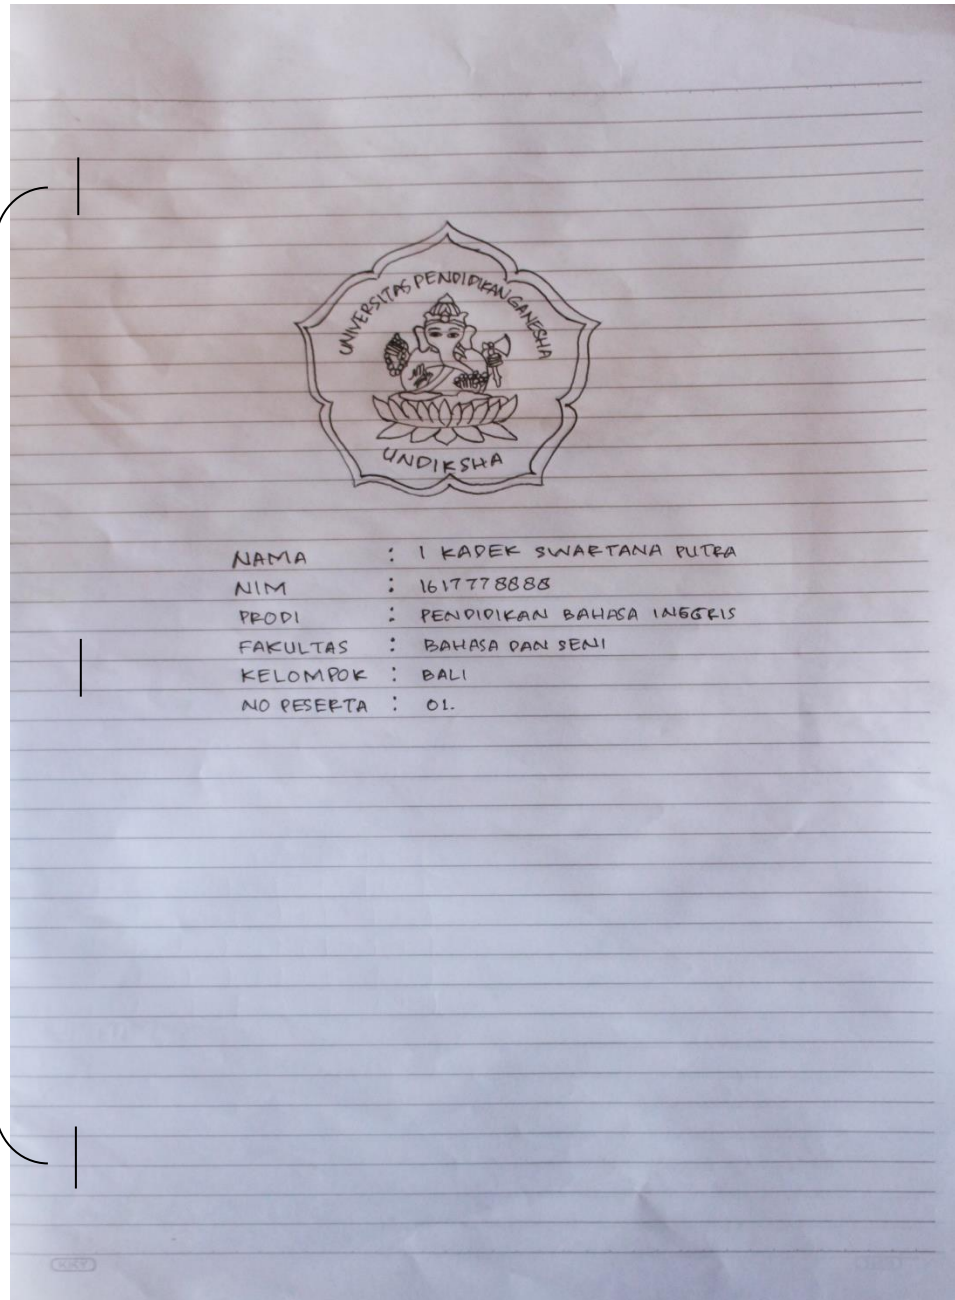 UNIVERSITAS PENDIDIKAN GANESHA
UNDIKSHA
NAMA : I KADEK SWARTANA PUTRA
NIM : 1617778888
PRODI : PENDIDIKAN BAHASA INGGRIS
FAKULTAS : BAHASA DAN SENI
KELOMPOK : BALI
NO PESERTA : 01.
KKY